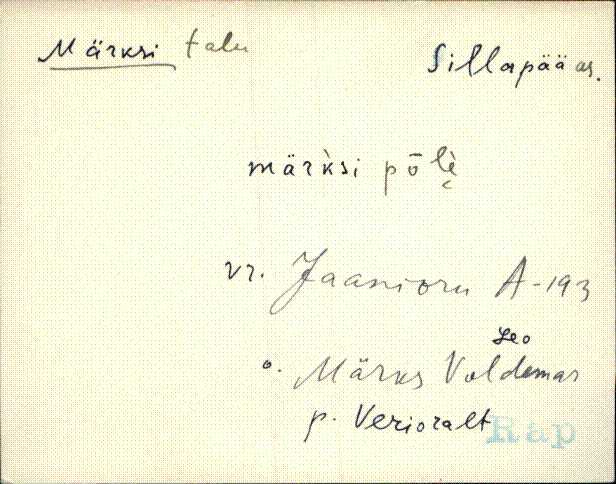 Märksi talu
Sillapää as.
märksi põle̬
vr. Jaanioru A-193
Leo
o. Märks Voldemar
p. Verioralt
Rap